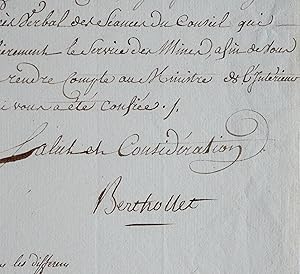 Verbal des Séances du Conseil qui
le Service des Mines, afin de vous
rendre Compte au Ministre de l'Intérieur
vous a été confiée ./.
Salut et Considération
Berthollet
les différens